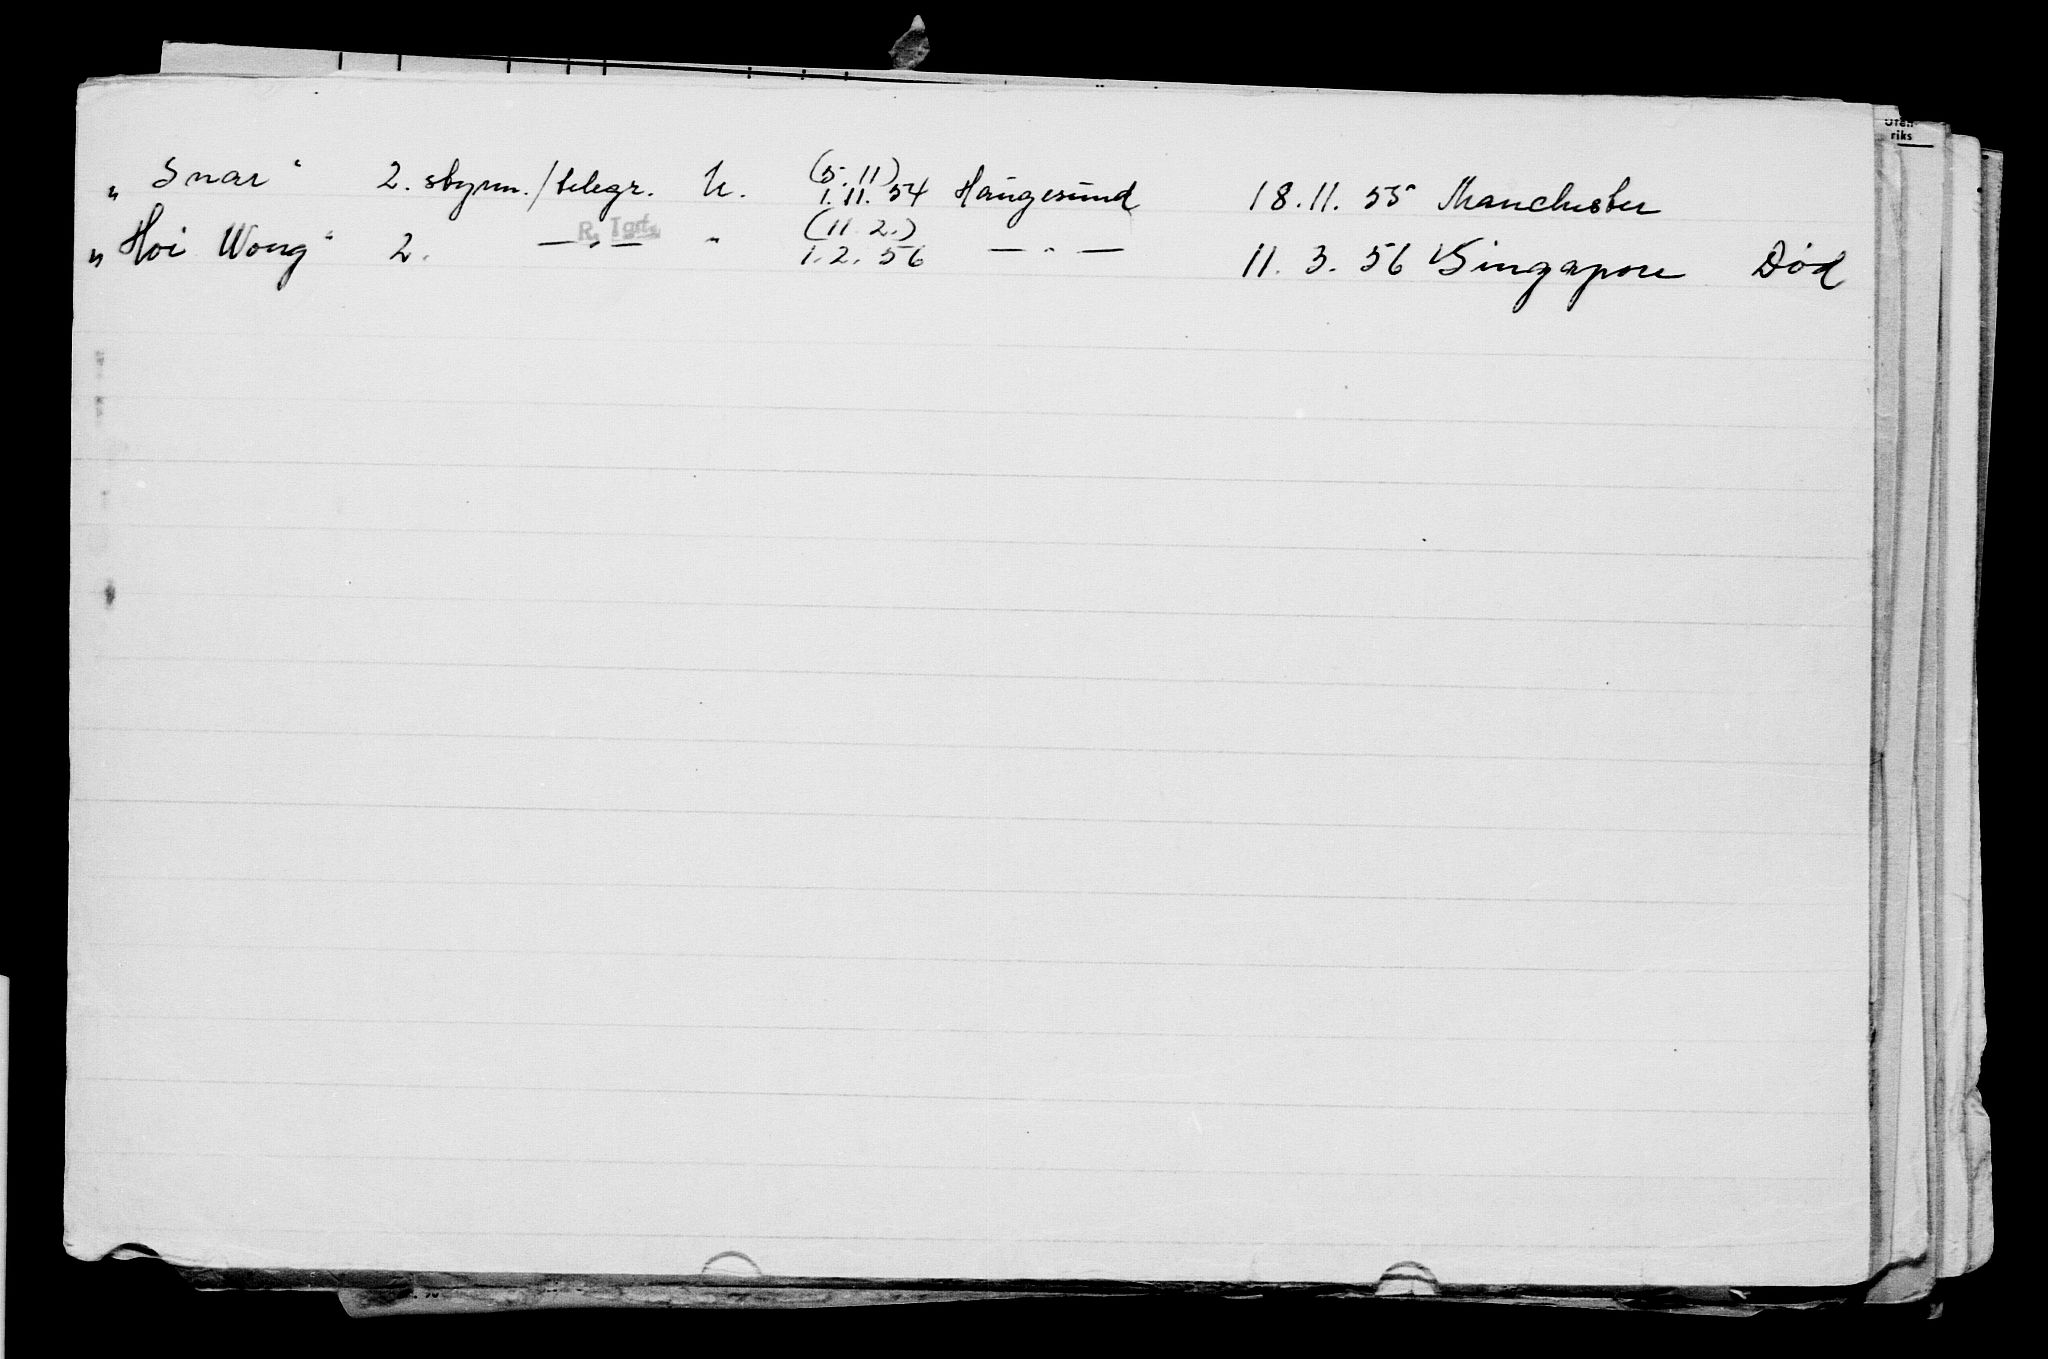 Uten-
riks
(5.11)
„Snar" 2. styrm./telegr. U. 1.11.54 Haugesund 18.11.55 Manchester
(11.2.)
„Hoi Wong" 2. —„— " 1.2.56 —„— 11.3.56 Singapore Død